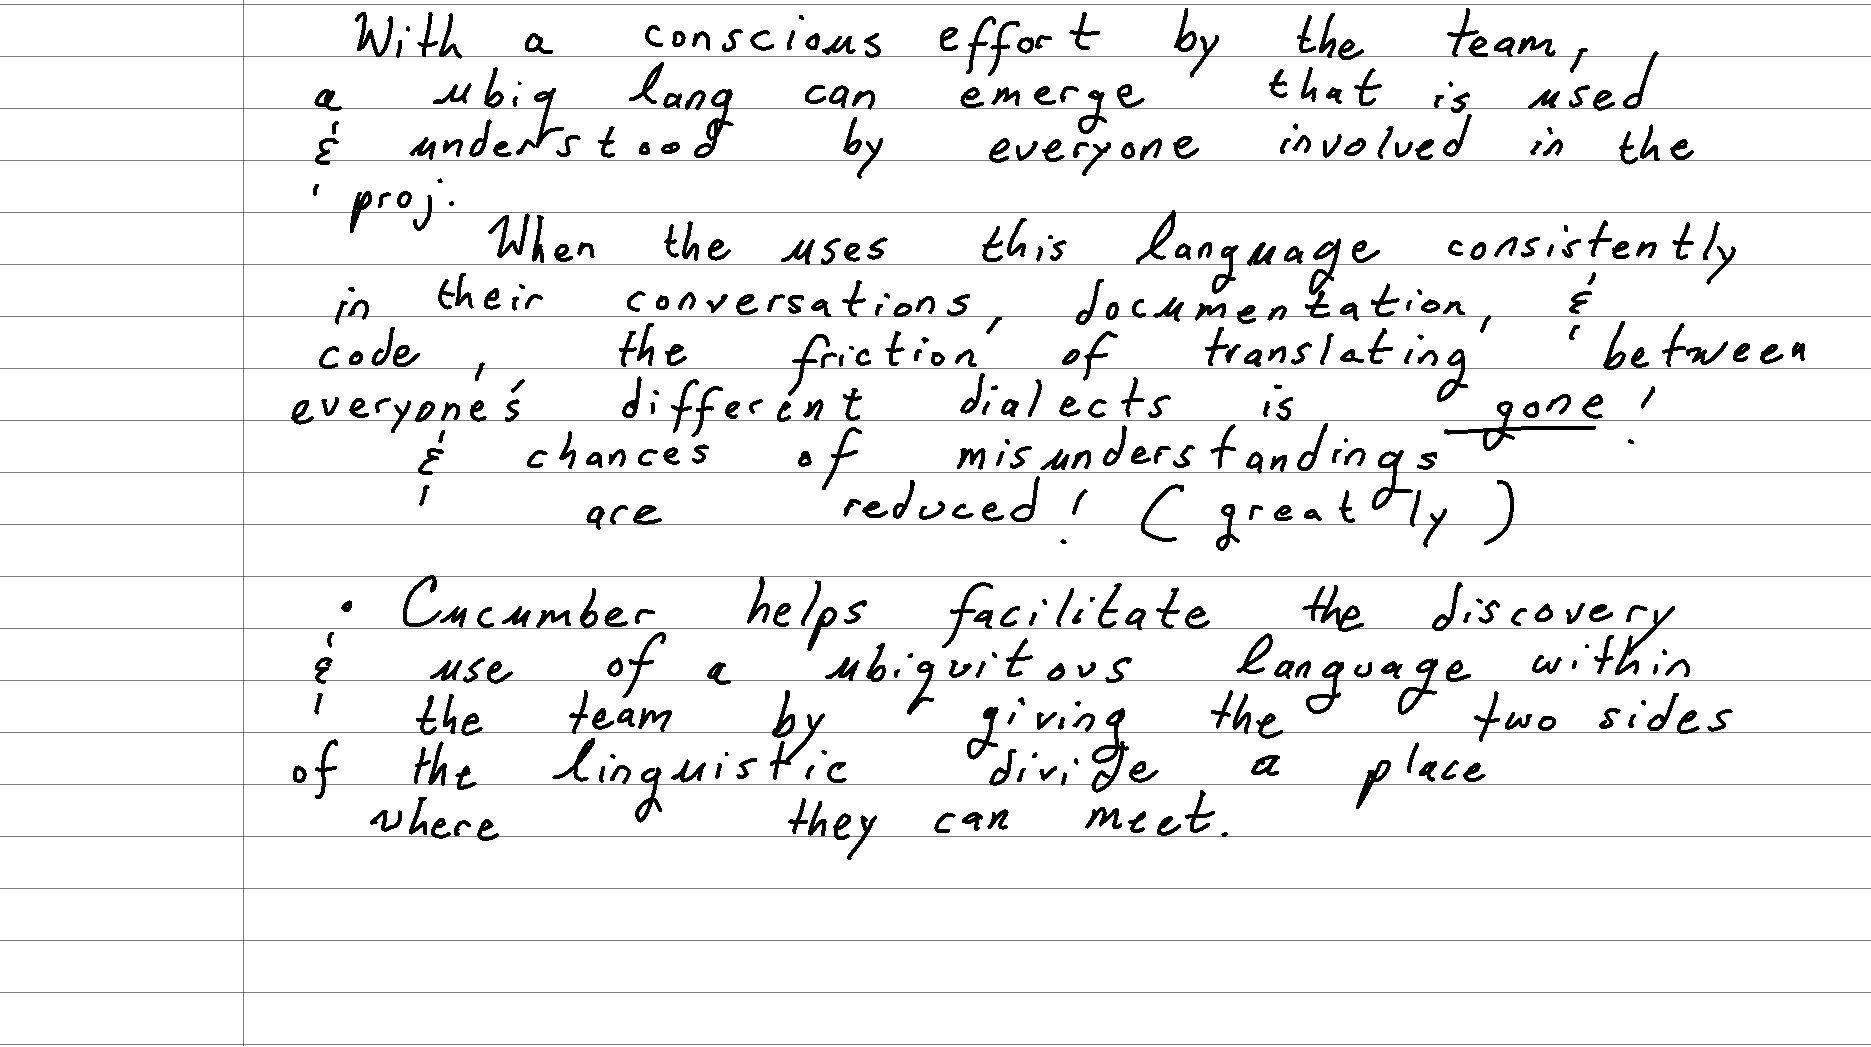 With a conscious effort by the team,
a ubiq lang can emerge that is used
& understood by everyone involved in the
proj.
When the uses this language consistently
in their conversations, documentation, &
code, the friction of translating between
everyone's different dialects is gone!
& chances of misunderstandings
are reduced! (greatly)
• Cucumber helps facilitate the discovery
& use of a ubiquitous language within
the team by giving the two sides
of the linguistic divide a place
where they can meet.